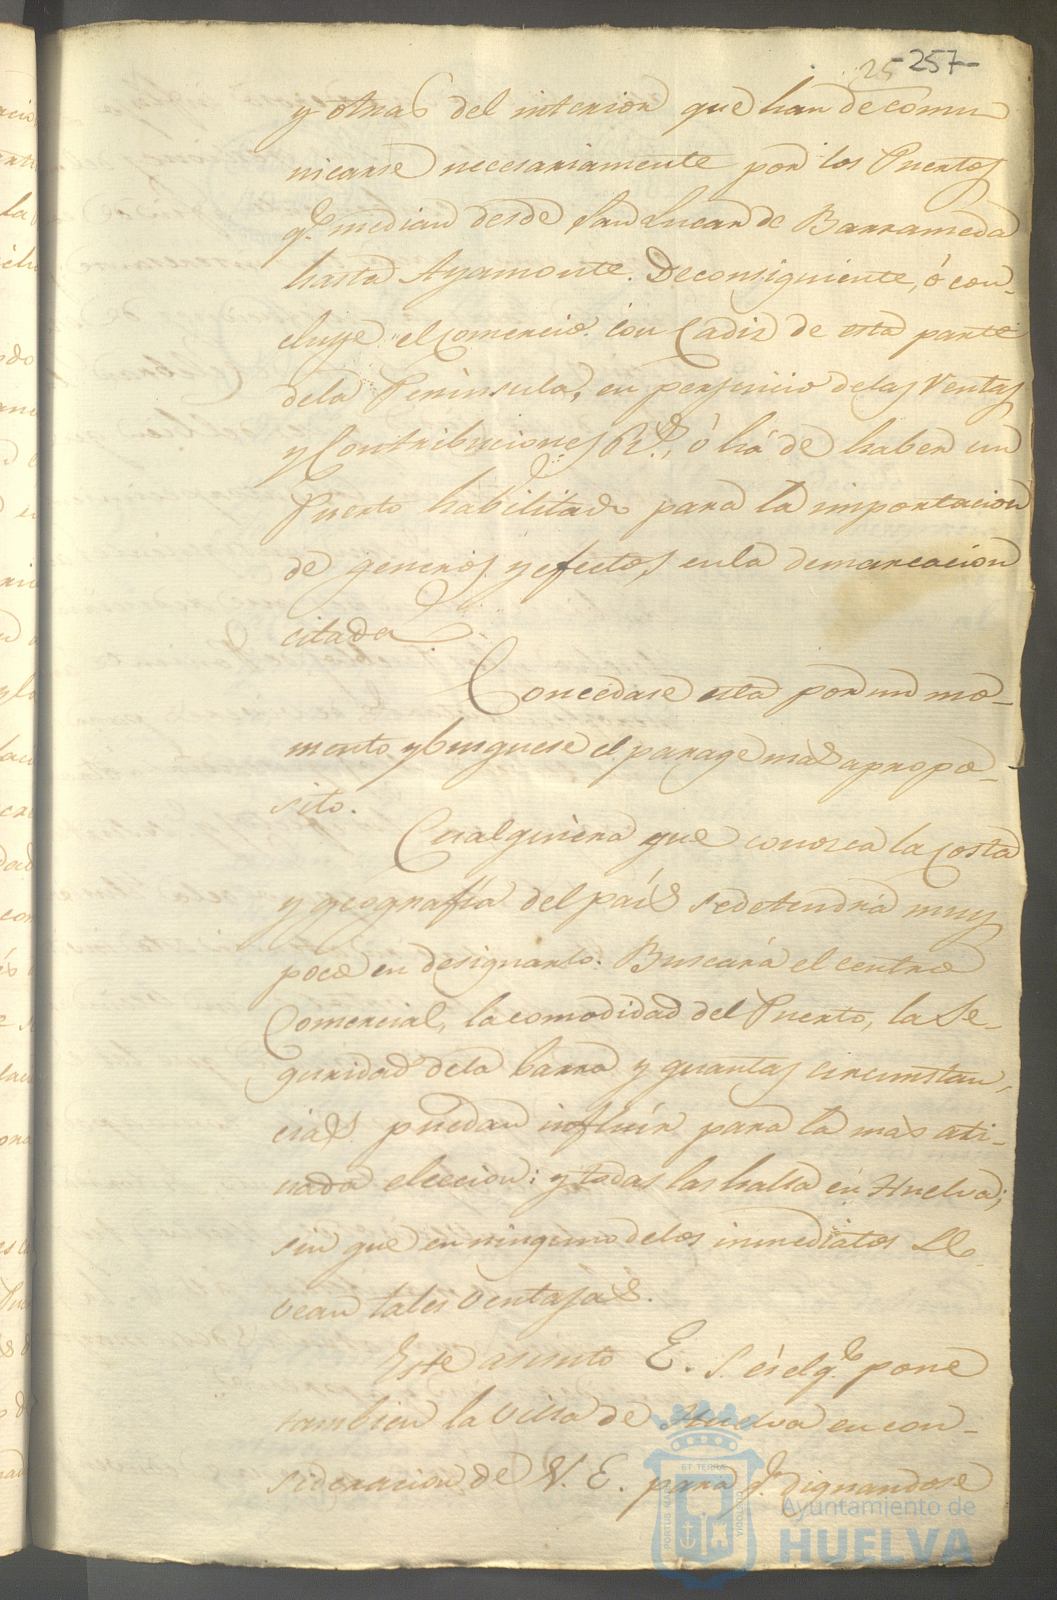 25 -257-
y otras del interior que han de comu
nicarse necesariamente por los Puertos
q.e median desde San Lucar de Barrameda
hasta Ayamonte. De consiguiente, ó con-
cluye el comercio con Cadiz de esta parte
dela Peninsula, en perjuicio delas Ventas
y Contribuciones R.s, ó há de haber un
Puerto habilitado para la importacion
de generos y efectos, en la demarcacion
citada.
Concedase esta por un mo-
mento y busquese el parage mas apropo-
sito.
Cualquiera que conosca la costa
y geografía del país se detendrá muy
poco en designarlo. Buscará el centro
Comercial, la comodidad del Puerto, la Se-
guridad dela barra y quantas circunstan-
cias puedan influír para la mas ati-
nada eleccion: y todas las halla en Huelva;
sin que en ninguno delos inmediatos se
vean tales ventajas.
Este asunto E. S. es el q.e pone
tambien la Villa de Huelva en con-
sideracion de V. E. para q.e dignandose
ET TERRÆ
PORTUS MARIS
CUSTODIA
Ayuntamiento de
HUELVA